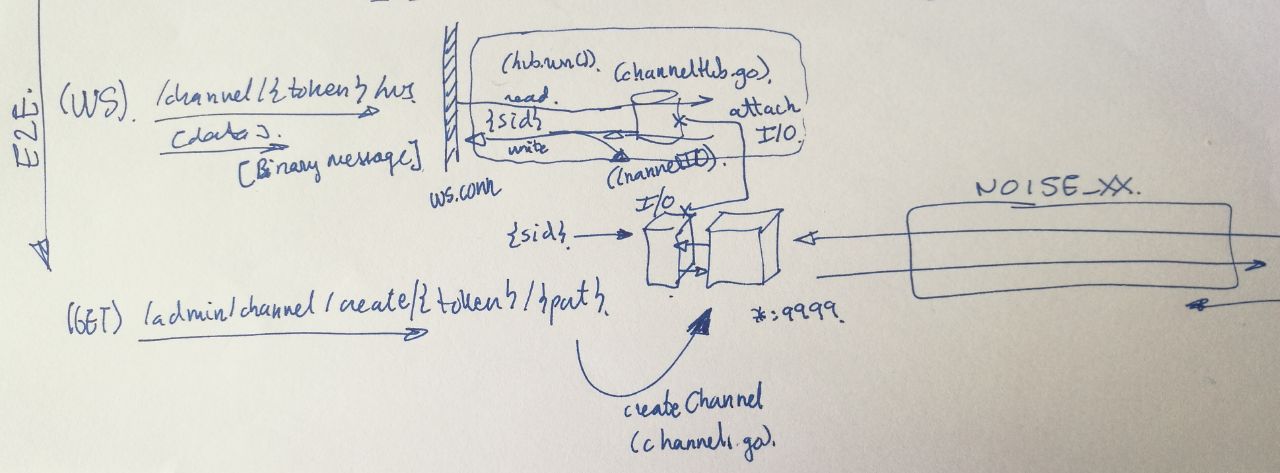 E2E.
(WS). /channel/{token}/ws
[data].
[Binary message]
ws.conn
(hub.run()).
(channelHub.go).
read.
{sid}
write
attach
I/O.
(channelIO).
I/O
{sid}
NOISE_XX.
*:9999.
(GET) /admin/channel/create/{token}/
createChannel
(channel.go).